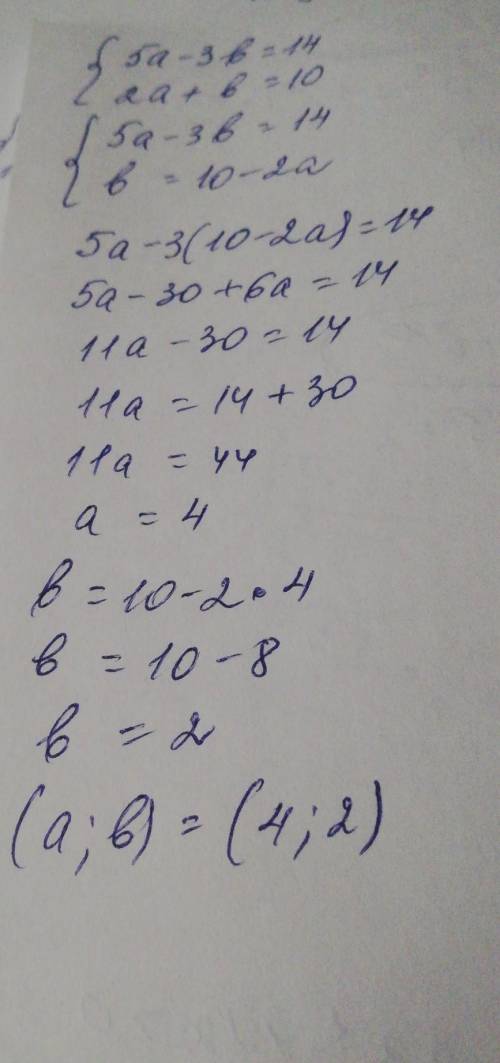 { 5a - 3b = 14
2a + b = 10
{ 5a - 3b = 14
b = 10 - 2a
5a - 3(10 - 2a) = 14
5a - 30 + 6a = 14
11a - 30 = 14
11a = 14 + 30
11a = 44
a = 4
b = 10 - 2 • 4
b = 10 - 8
b = 2
(a; b) = (4; 2)